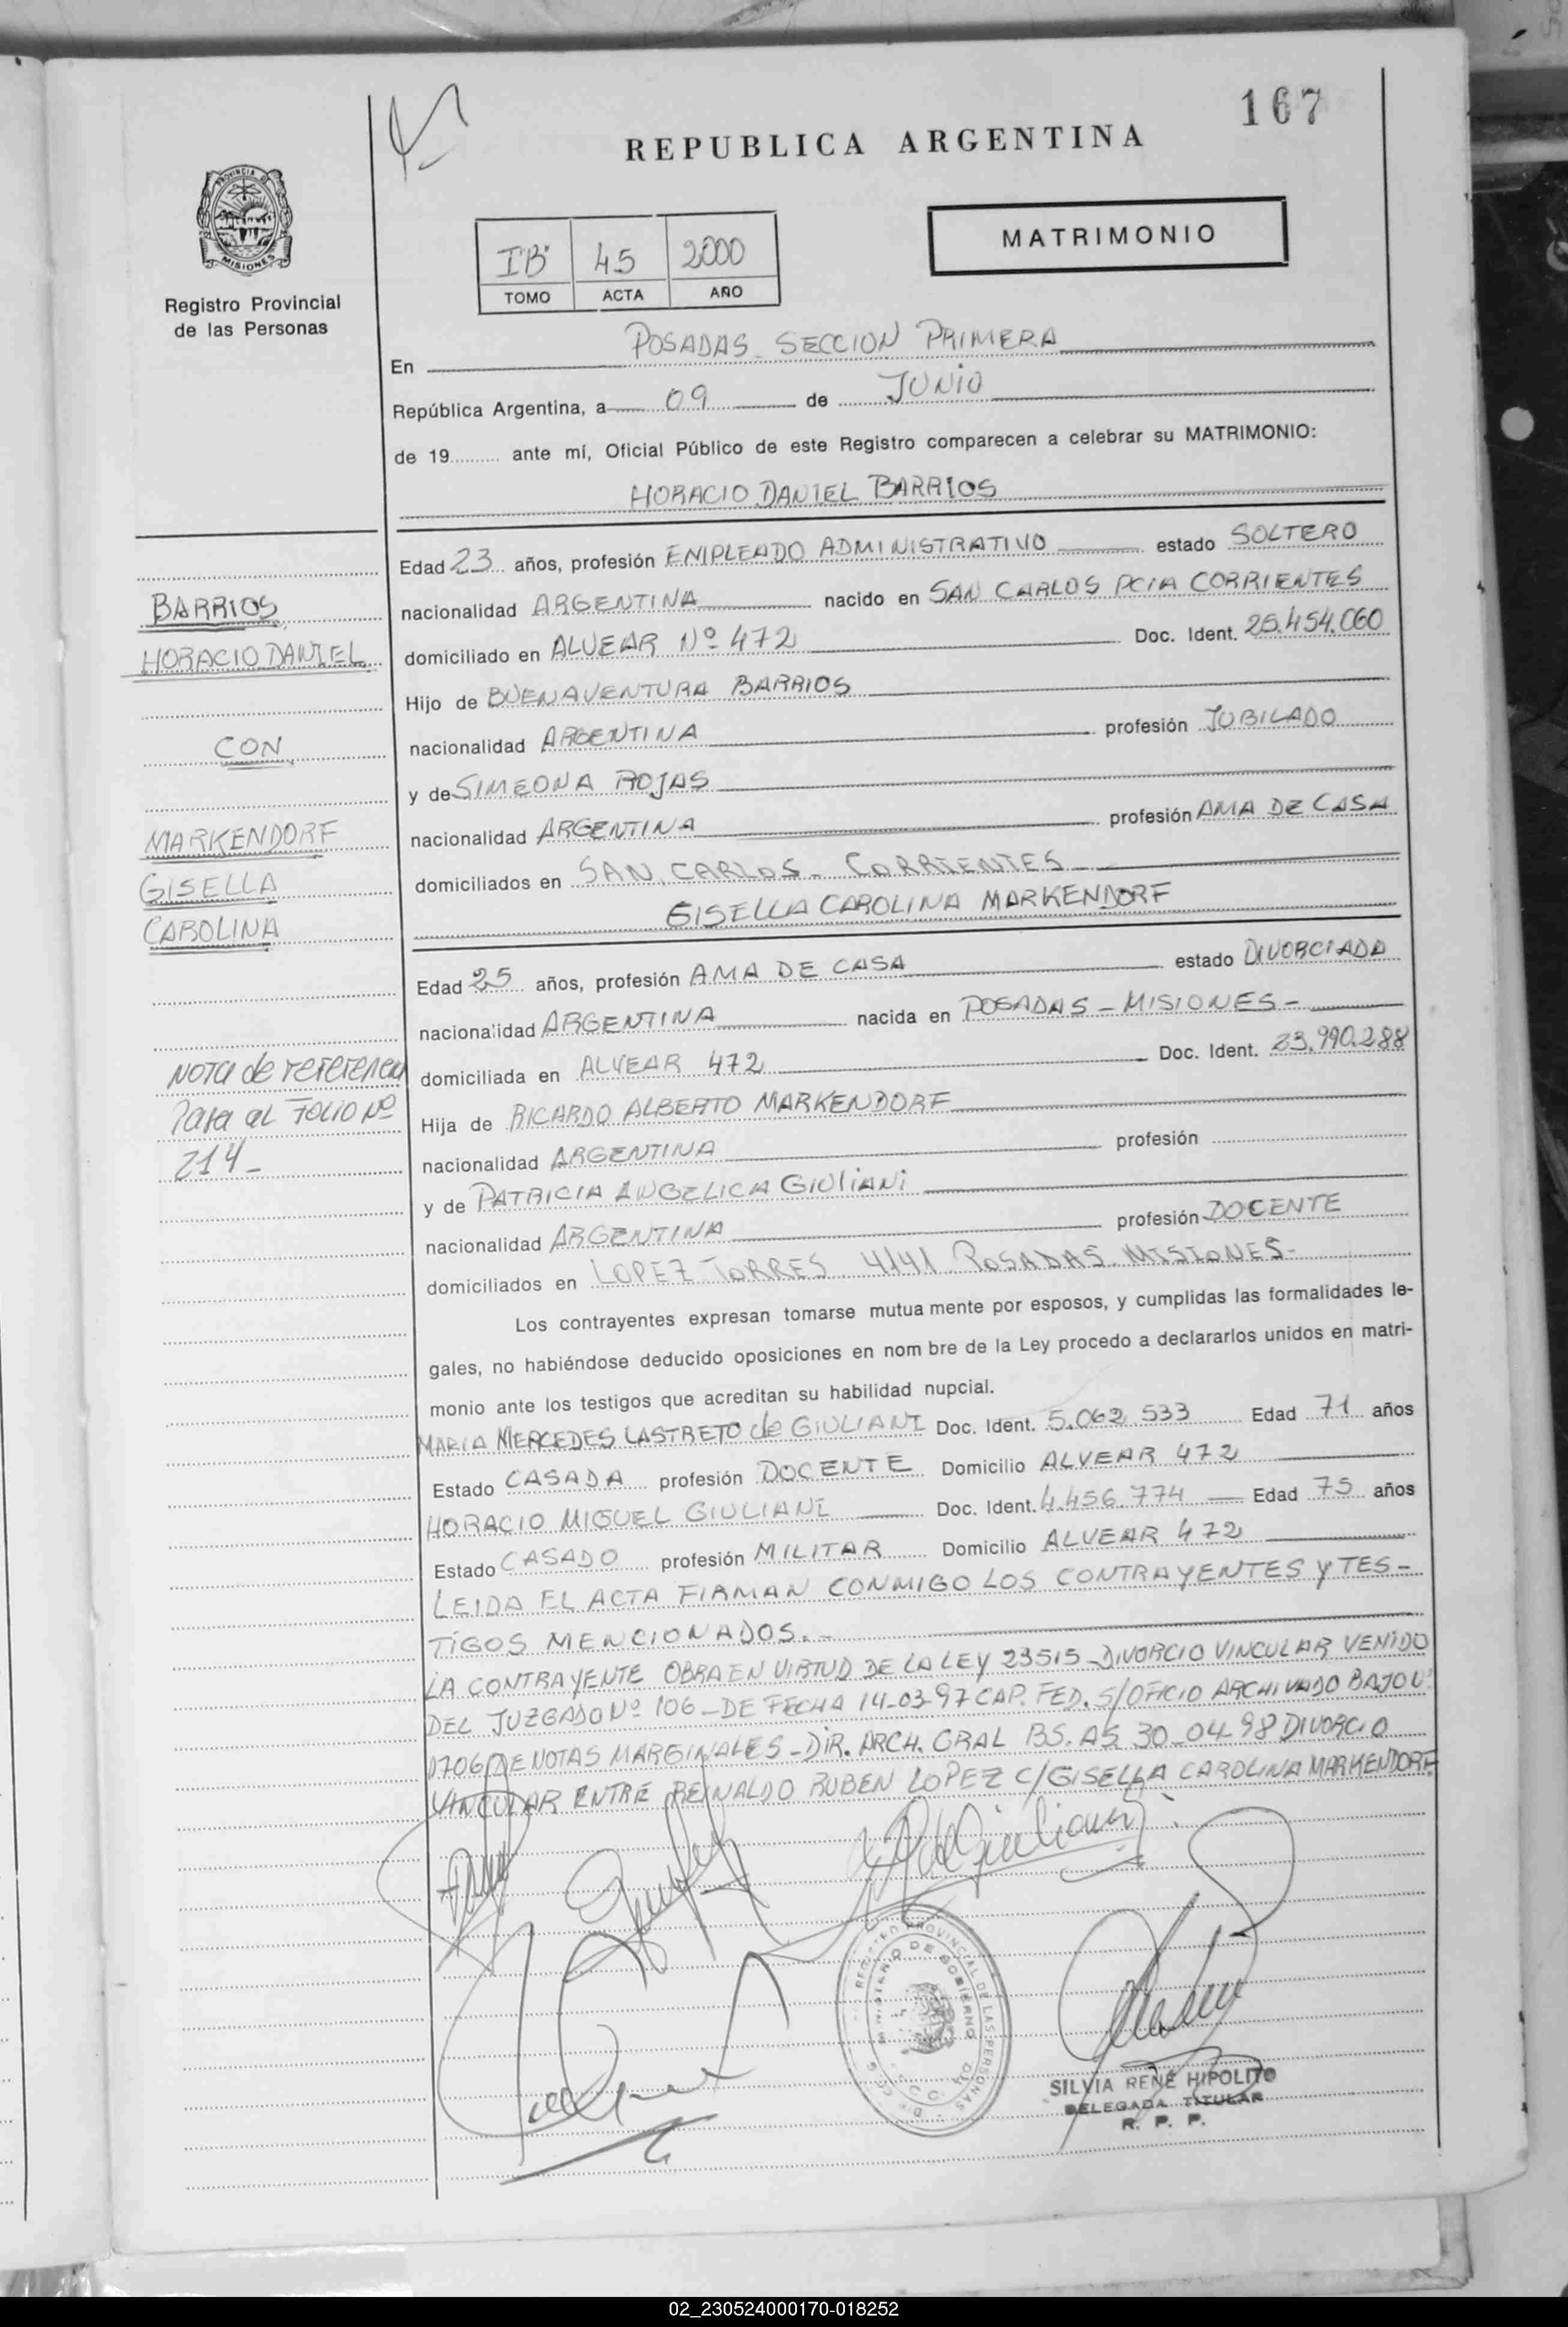 167
REPUBLICA ARGENTINA
PROVINCIA DE
MISIONES
Registro Provincial
de las Personas
I"B" 45 2000
TOMO ACTA AÑO
MATRIMONIO
En POSADAS - SECCION PRIMERA
República Argentina, a 09 de JUNIO
de 19 ante mí, Oficial Público de este Registro comparecen a celebrar su MATRIMONIO:
HORACIO DANIEL BARRIOS
Edad 23 años, profesión EMPLEADO ADMINISTRATIVO estado SOLTERO
nacionalidad ARGENTINA nacido en SAN CARLOS PCIA CORRIENTES
domiciliado en ALVEAR Nº 472 Doc. Ident. 25.454.060
Hijo de BUENAVENTURA BARRIOS
nacionalidad ARGENTINA profesión JUBILADO
y de SIMEONA ROJAS
nacionalidad ARGENTINA profesión AMA DE CASA
domiciliados en SAN CARLOS - CORRIENTES
GISELLA CAROLINA MARKENDORF
Edad 25 años, profesión AMA DE CASA estado DIVORCIADA
nacionalidad ARGENTINA nacida en POSADAS - MISIONES -
domiciliada en ALVEAR 472 Doc. Ident. 23.990.288
Hija de RICARDO ALBERTO MARKENDORF
nacionalidad ARGENTINA profesión
y de PATRICIA ANGELICA GIULIANI
nacionalidad ARGENTINA profesión DOCENTE
domiciliados en LOPEZ TORRES 4141 POSADAS MISIONES-
Los contrayentes expresan tomarse mutua mente por esposos, y cumplidas las formalidades le-
gales, no habiéndose deducido oposiciones en nom bre de la Ley procedo a declararlos unidos en matri-
monio ante los testigos que acreditan su habilidad nupcial.
MARIA MERCEDES LASTRETO de GIULIANI Doc. Ident. 5.062.533 Edad 71 años
Estado CASADA profesión DOCENTE Domicilio ALVEAR 472
HORACIO MIGUEL GIULIANI Doc. Ident. 4.456.774 Edad 75 años
Estado CASADO profesión MILITAR Domicilio ALVEAR 472
LEIDA EL ACTA FIRMAN CONMIGO LOS CONTRAYENTES Y TES-
TIGOS MENCIONADOS.-
LA CONTRAYENTE OBRA EN VIRTUD DE LA LEY 23515 - DIVORCIO VINCULAR VENIDO
DEL JUZGADO Nº 106 - DE FECHA 14-03-97 CAP. FED. S/OFICIO ARCHIVADO BAJO Nº
1706 DE NOTAS MARGINALES - DIR. ARCH. GRAL BS. AS 30-04-98 DIVORCIO
VINCULAR ENTRE REINALDO RUBEN LOPEZ C/GISELLA CAROLINA MARKENDORF
BARRIOS
HORACIO DANIEL
CON
MARKENDORF
GISELLA
CAROLINA
NOTA de referencia
Pasa al FOLIO Nº
214 -
REGISTRO PROVINCIAL DE LAS PERSONAS
MINISTERIO DE GOBIERNO
SILVIA RENÉ HIPOLITO
DELEGADA TITULAR
R. P. P.
02_230524000170-018252